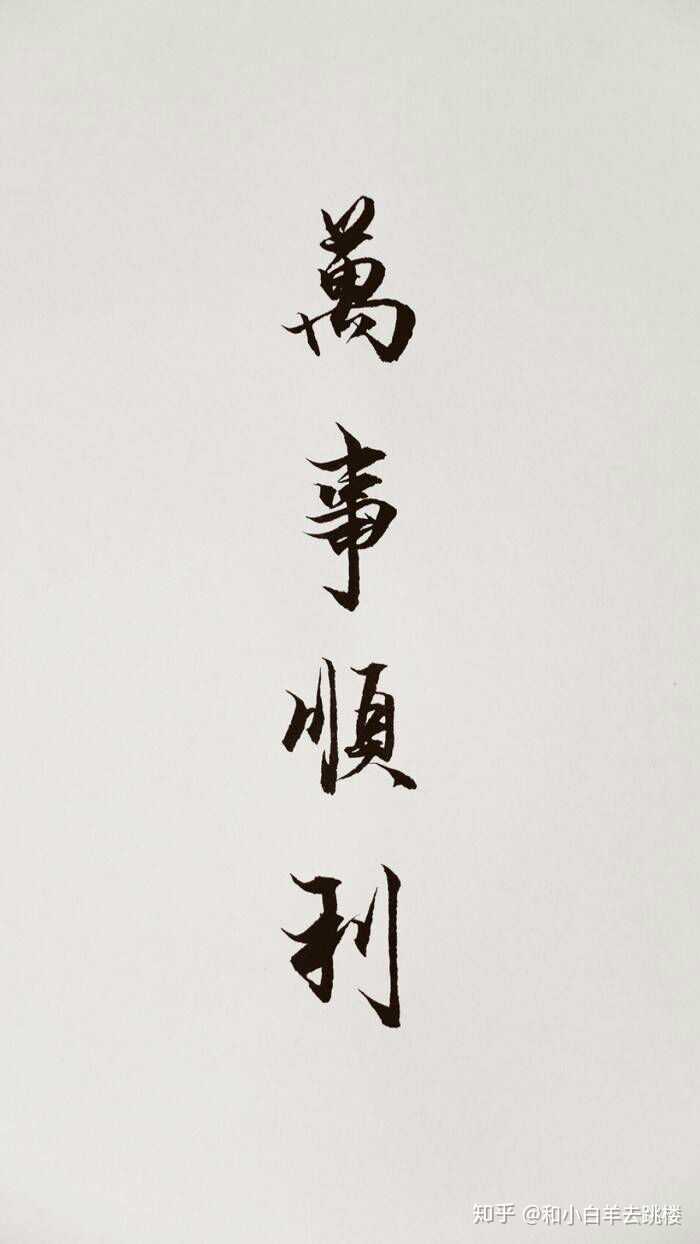 萬事順利
知乎 @和小白羊去跳楼